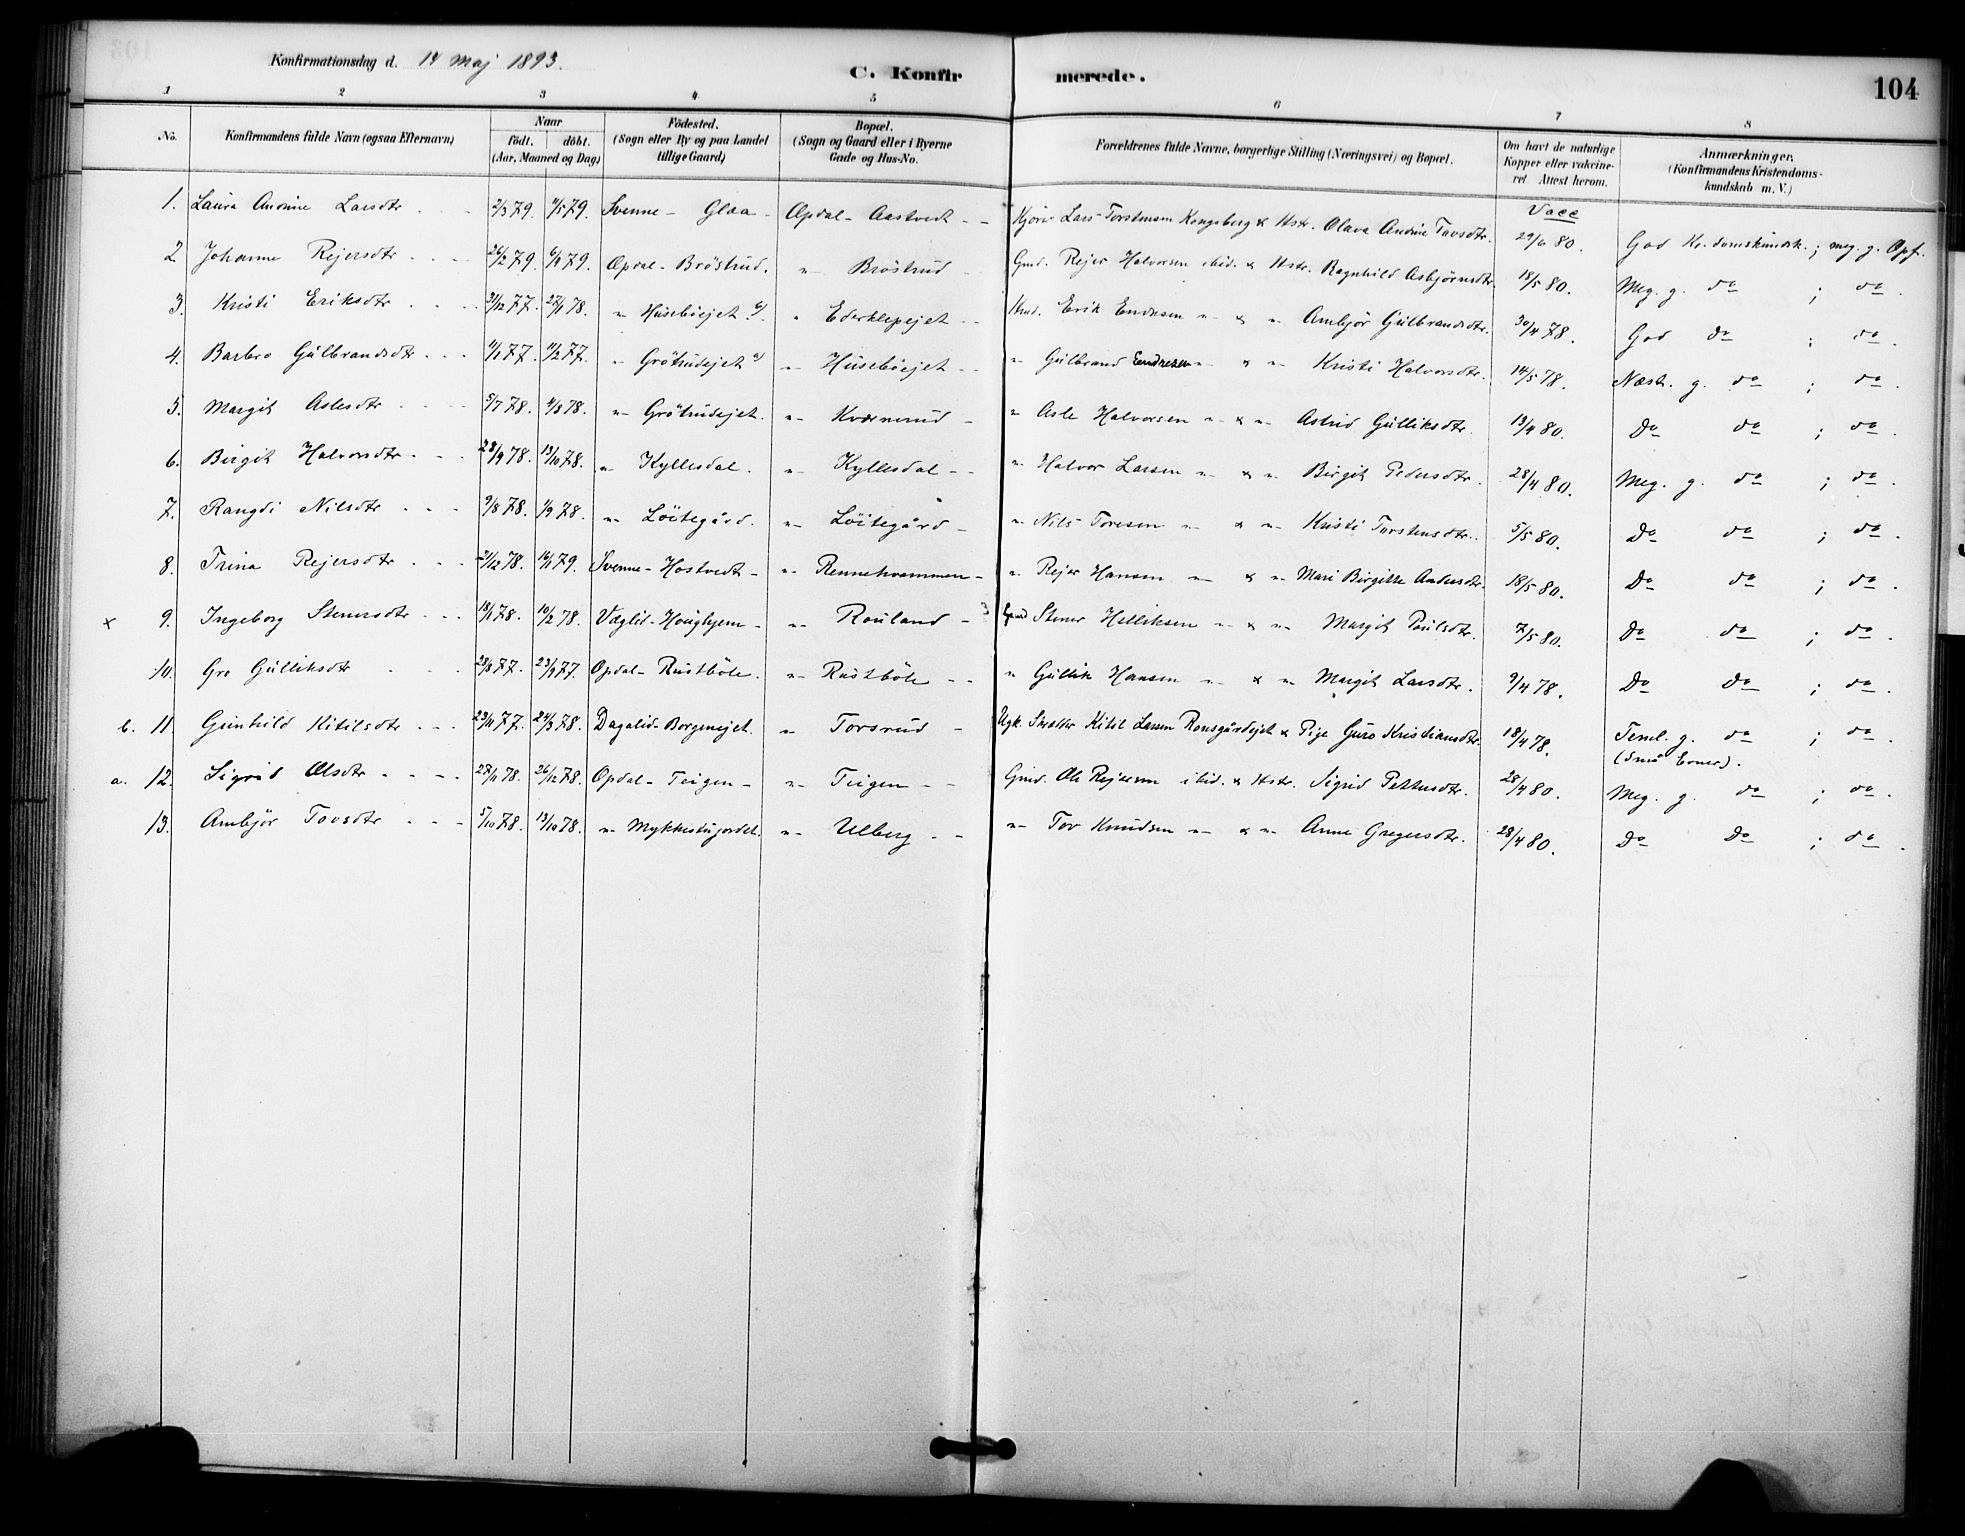 Konfirmationsdag d. 14 Maj 1893. C. Konfir merede. 104
1 2 3 4 5 6 7 8
No. Konfirmandens fulde Navn (ogsaa Efternavn) Naar födt. döbt. (Aar, Maaned og Dag) Födested. (Sogn eller By og paa Landet tillige Gaard) Bopæl. (Sogn og Gaard eller i Byerne Gade og Hus-No. Forældrenes fulde Navne, borgerlige Stilling (Næringsvei) og Bopæl. Om havt de naturlige Kopper eller vakcineret Attest herom. Anmærkninger. (Konfirmandens Kristendomskundskab m. V.)
Vacc
1. Laura Andrine Larsdtr 2/3 79. 4/5 79. Svenne - Glaa - Opdal - Aastvedt - Kjörer Lars Torstensen Kongsberg & Hstr. Olava Andrine Tovsdtr. 29/6 80. God Kr.domskundsk.; meg. g. Opf.
2 Johanne Rejersdtr 26/2 79. 6/4 79. Opdal - Bröstrud. " Bröstrud Gmd. Rejer Halvorsen ibid. & Hstr. Ragnhild Asbjörnsdtr. 18/5 80. Meg. g. do ; do.
3. Kristi Eriksdtr 31/12 77. 27/1 78. " Huseböejet " Ederklepejet Hmd. Erik Endresen " & " Ambjör Gulbrandsdtr. 30/4 78. God do ; do.
4. Barbro Gulbrandsdtr 4/1 77. 11/2 77. " Grötrudejet " Huseböejet " Gulbrand Endresen " & " Kristi Halvorsdtr. 14/5 78. Næst. g. do ; do.
5. Margit Aslesdtr 5/7 78. 4/8 78. " Grötrudejet. " Kværnerud " Asle Halvorsen " & " Astrid Gulliksdtr. 13/4 80. Do do ; do.
6. Birgit Halvorsdtr. 28/9 78. 13/10 78. " Kyllesdal. " Kyllesdal " Halvor Larsen " & " Birgit Pedersdtr. 28/4 80. Meg. g. do ; do.
7. Rangdi Nilsdtr 9/8 78. 1/9 78. " Löitegård. " Löitegård " Nils Toresen " & " Kristi Torstensdtr. 5/5 80. Do do ; do.
8. Trina Rejersdtr 21/12 78. 16/1 79. Svenne - Hostvedt " Rennehvammen " Rejer Hansen " & " Mari Birgitte Andersdtr. 18/5 80. Do do ; do.
x 9. Ingeborg Stenersdtr 18/1 78. 10/2 78. Væglid - Houghjem " Rouland Gmd Stener Helliksen " & " Margit Poulsdtr. 7/5 80. Do do ; do.
10. Gro Gulliksdtr 28/8 77. 23/9 77. Opdal - Rustböle. " Rustböle " Gullik Hansen " & " Margit Larsdtr. 9/4 78. Do do ; do.
b. 11. Gunhild Kitilsdtr 23/11 77. 24/3 78. Dagalid - Borgenejet. " Torsrud Ugk. Kitil Larsen & Pige Guro Kristiansdtr. 18/4 78. Teml. g. do ; do.
(små Evner).
a. 12. Sigrid Olsdtr 27/11 78. 26/12 78. Opdal - Teigen " Teigen Gmd. Ole Rejersen ibid. & Hstr. Sigrid Pettersdtr. 28/4 80. Meg. g. do ; do.
13. Ambjör Tovsdtr 5/10 78. 13/10 78. " Mykkestujordet. " Ulberg " Tov Knudsen " & " Anne Gregersdtr. 28/4 80. Do Do ; do.